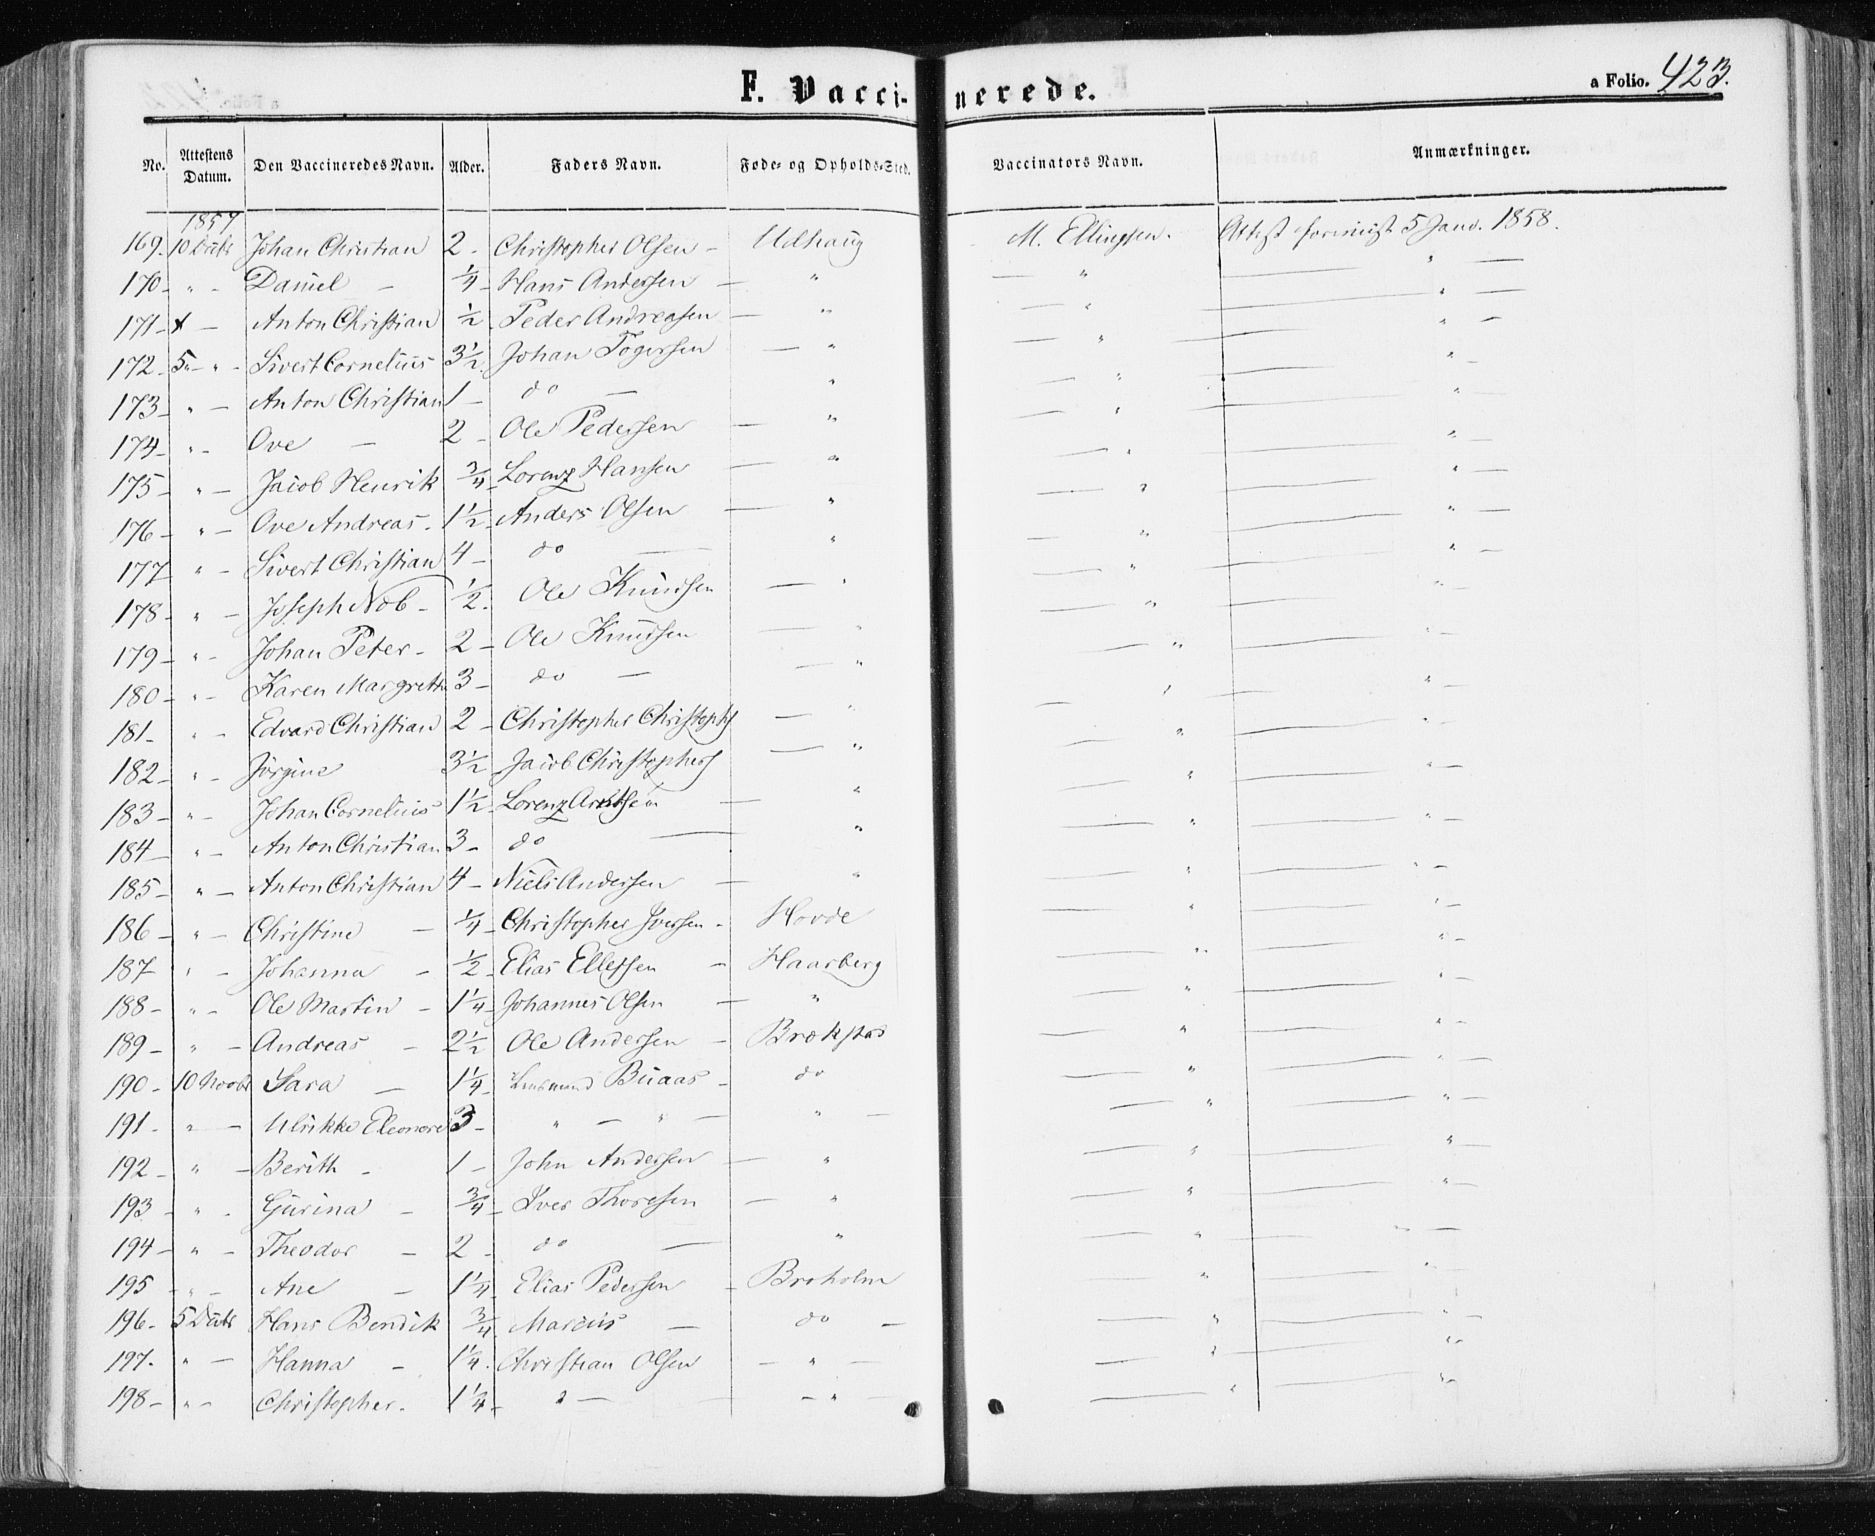 F. Vaccinerede.
a Folio. 423.
No. Attestens Datum. Den Vaccineredes Navn. Alder. Faders Navn. Føde- og Opholds-Sted. Vaccinators Navn. Anmærkninger.
1857
169. 10 Johan Christian 2 - Christopher Olsen - Udhaug M. Ellingsen. Attest 5 Janv. 1858.
170 - " - Daniel - 1/4 - Hans Andersen - " — " — " —
171 - — Anton Christian 1/2 Peder Andreasen — " — " — " —
172 - 5 - " - Sivert Cornelius 3 1/2 Johan Togersen — " — " — " —
173 - " — Anton Christian 1 - do — " — " — "
174 - " - Ove — 2 - Ole Pedersen — " — " — "
175 - " — Jacob Henrik 3/4 Lorenz Hansen — " — " — " —
176 - " — Ove Andreas - 1 1/2 Anders Olsen — " — " — " —
177 " - Sivert Christian 4 - do — " — " — " —
178 - " - Joseph Nob - 1/2. Ole Knudsen — " — " — " —
179 - " - Johan Peter - 2 - Ole Knudsen — " — " — " —
180 - " - Karen Margrethe 3 - do — — " — " — " —
181 - " - Edvard Christian 2 - Christopher Christophs — " — " — " —
182 - " - Jørgine 3 1/2 Jacob Christophers — " — " — " —
183 - " - Johan Cornelius 1 1/2 Lorenz Arntsen — " — " — " —
184 - " - Anton Christian 3 - do — " — " — " —
185 - " — Anton Christian 4 - Niels Andersen — " — " — " —
186 - " - Christine - 1/4 - Christopher Iversen - Hovde — " — " —
187 - " - Johanna - 1/2 - Elias Ellefsen - Haarberg — " — " —
188 - " - Ole Martin - 1 1/4 - Johannes Olsen — " — " — " —
189 - " - Andreas - 2 1/2 Ole Andersen - Brækstad — " — " —
190 - 10 Novbr Sara - 1 1/4 - Buaas - do — " — " —
191 - " — Ulrikke Eleonore 3 - " — " — " — — " — " —
192 - " - Berith - 1 - John Andersen — " — " — " —
193 - " - Gurina - 3/4 - Iver Thoresen — " — " — " —
194 - " - Theodor - 2 - do — " — " — " —
195 - " - Ane - 1 1/4 Elias Pedersen - Broholm — " — " —
196 - 5 Hans Bendik 3/4 Marcus — do — — " — " —
197 - " — Hanna - 1 1/4. Christian Olsen — " — — " — "
198 - " - Christopher. 1 1/4 - " — — " — — " — " -